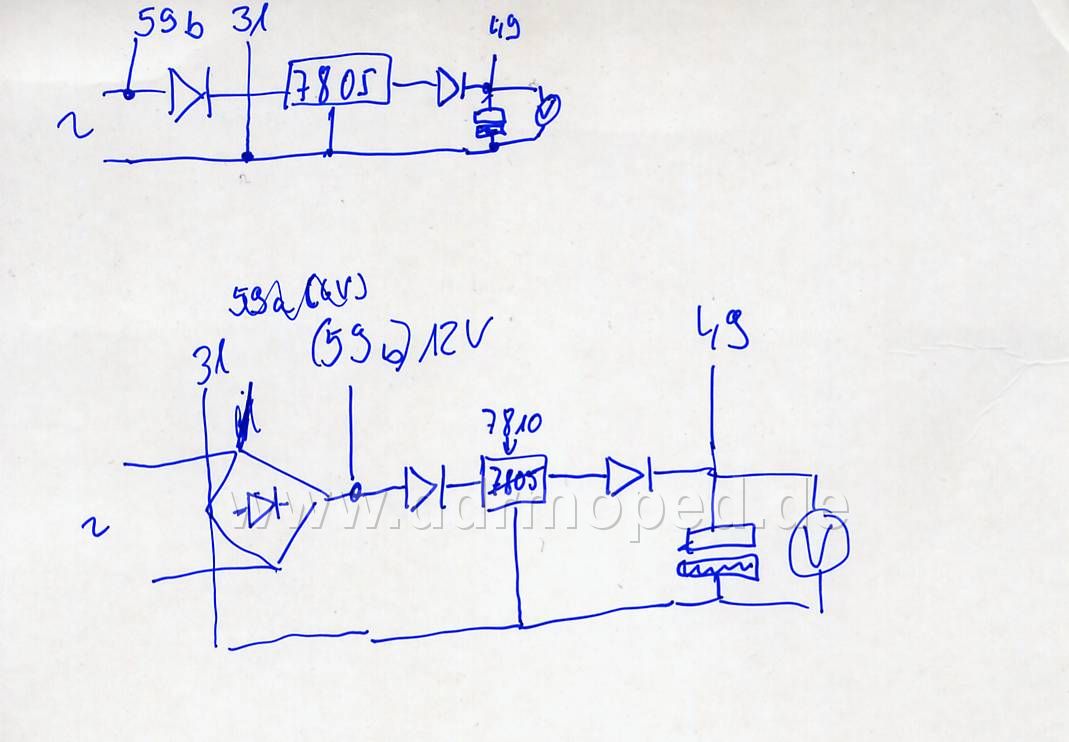 59b 31 49
~
7805
V
59a (6V)
(59b) 12V
49
31
7810
7805
~
V
www.ddrmoped.de